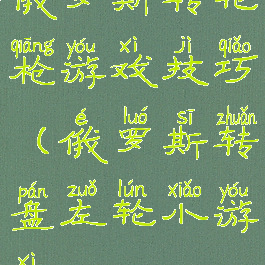 俄罗斯转轮
qiāng yóu xì jì qiǎo
枪游戏技巧
é luó sī zhuǎn
（俄罗斯转
pán zuǒ lún xiǎo yóu
盘左轮小游
xì